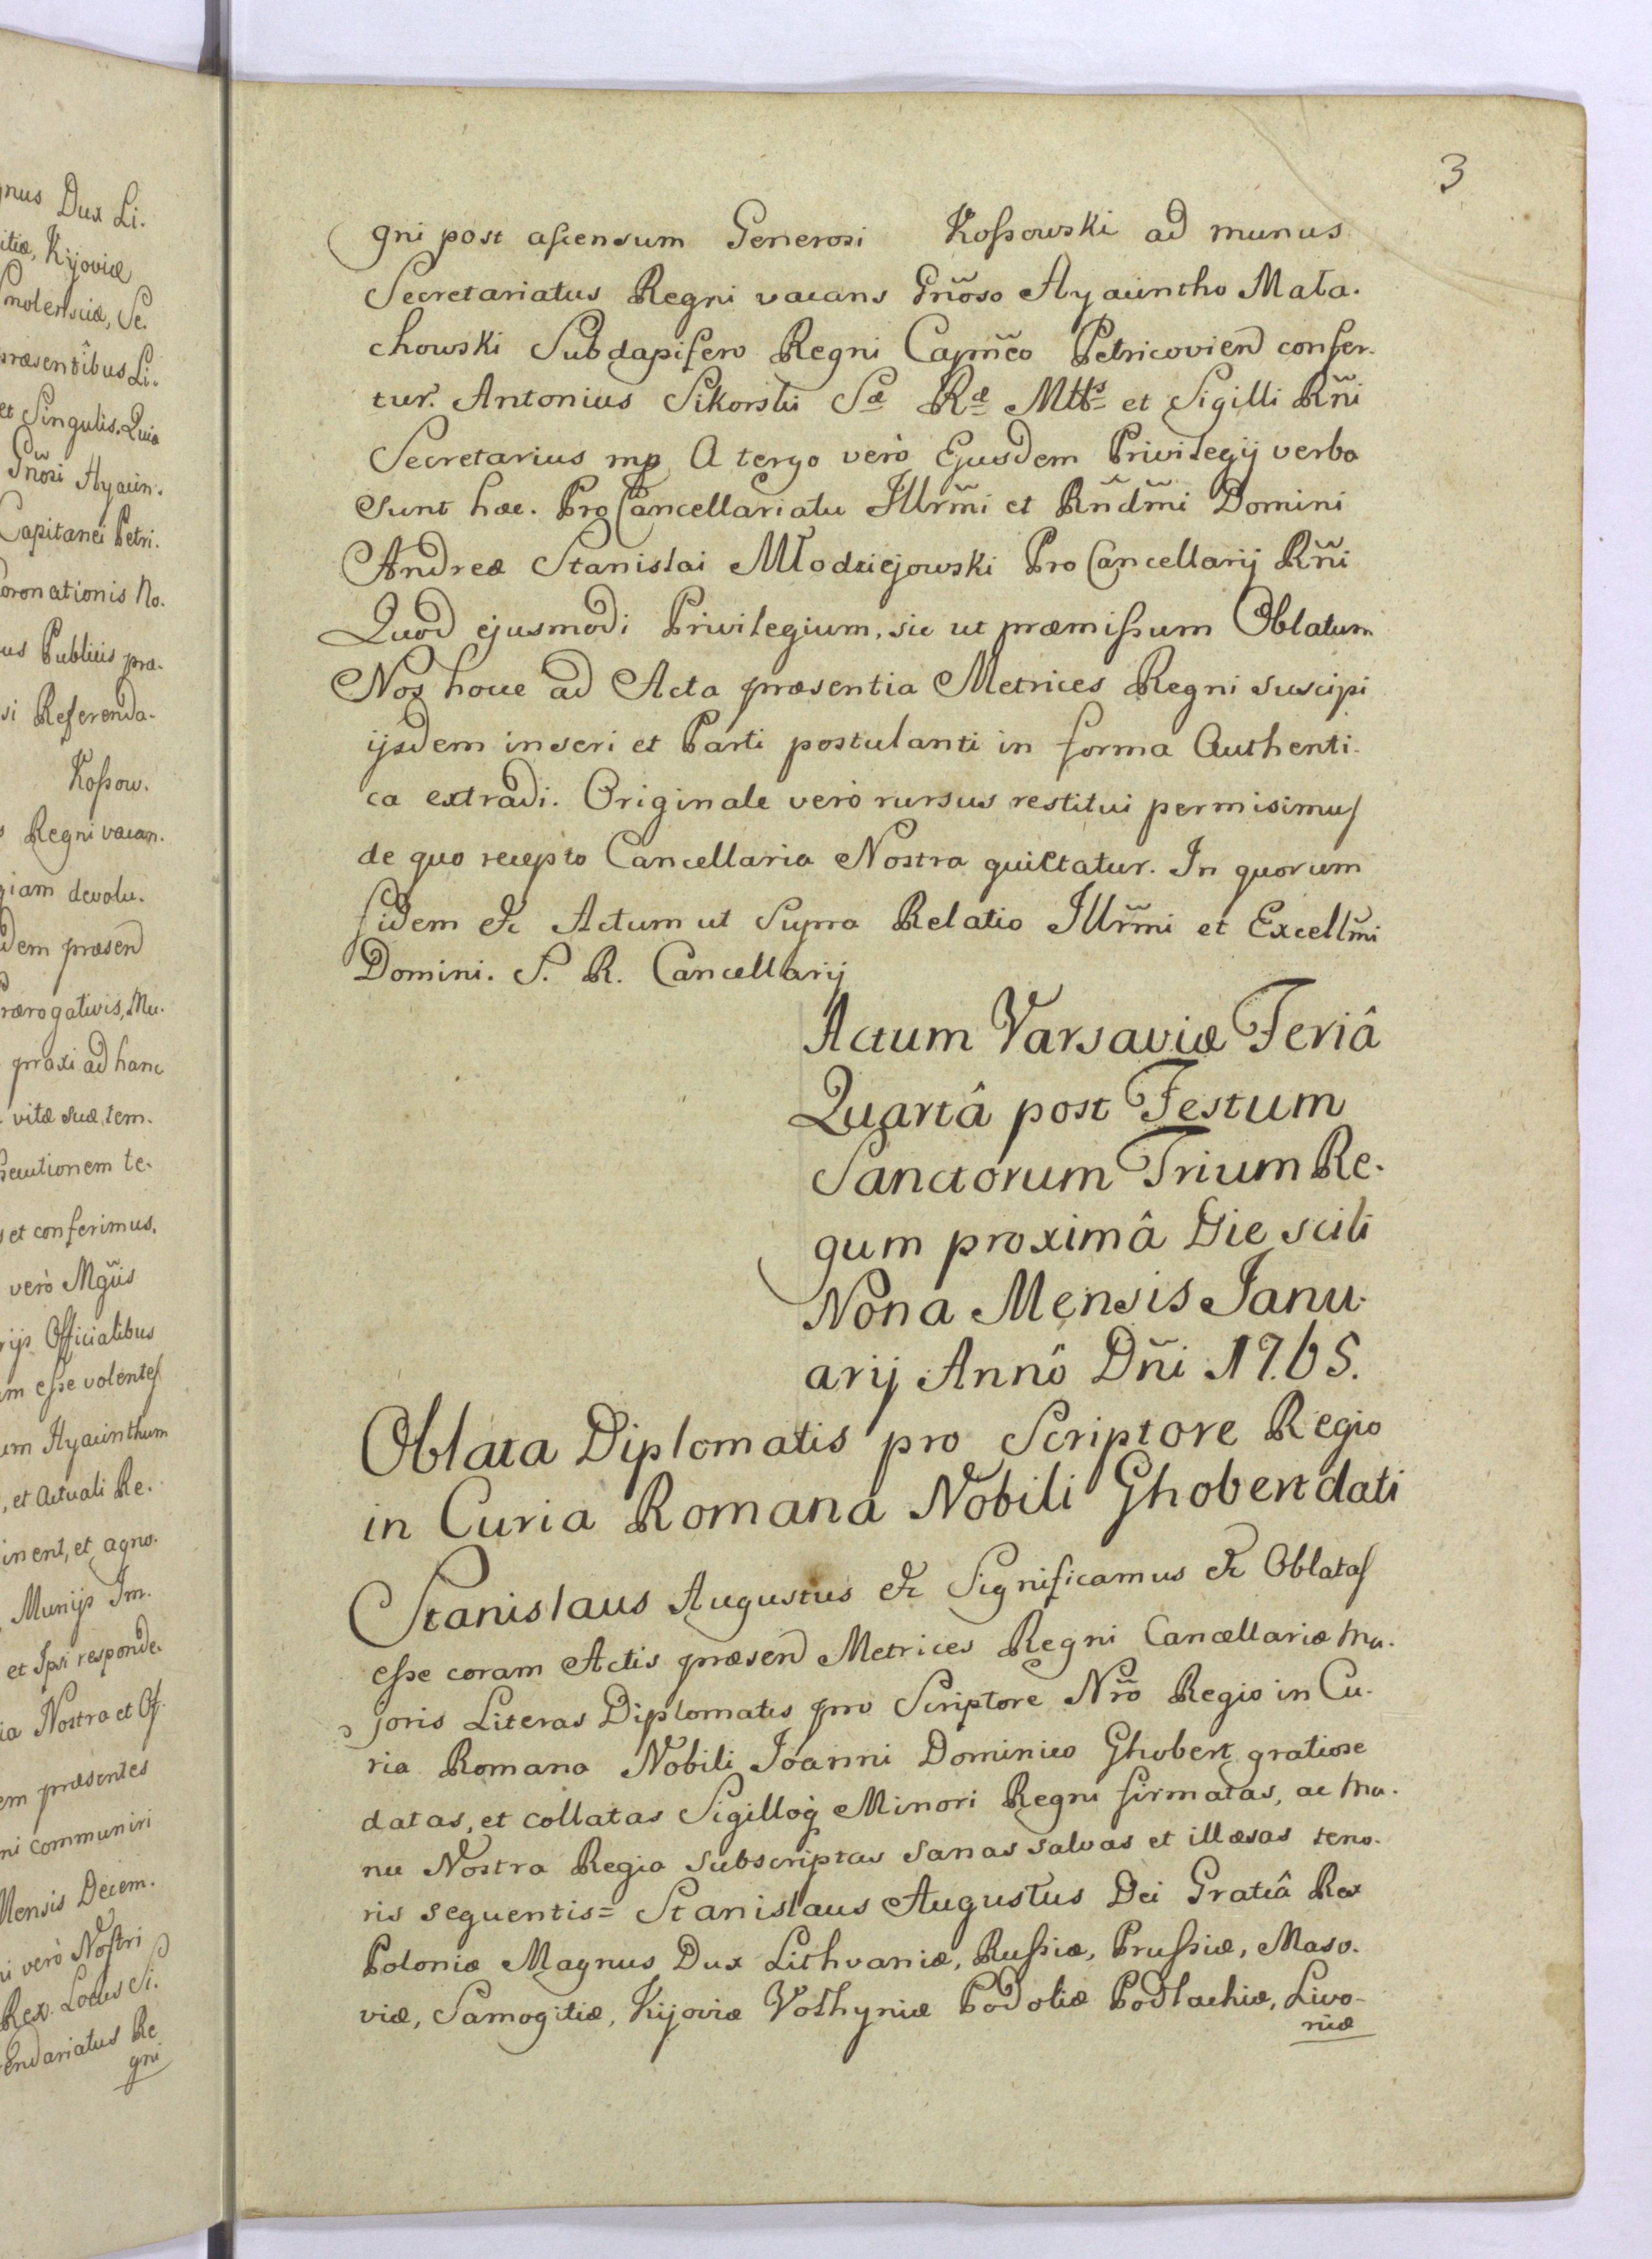 nus Dux Li.
itiæ, Kijoviæ
molensciæ, Se.
præsentibus Li.
et Singulis. Quia
Gñosi Hyacin.
Capitanei Petri.
oronationis No.
us Publicis præ.
si Referenda.
Koſsow.
s Regni vacan.
giam devolu.
dem præsend
rærogativis, Mu.
praxi ad hanc
vitæ suæ tem.
secutionem te.
s et conferimus.
vero Mgñis
rijs Officialibus
m eſse volentes
um Hyacinthum
, et Actuali Re.
inent, et agno.
Munijs Im.
et Ipsi responde.
ia Nostra et Of.
em præsentes
ni communiri
Mensis Decem.
ni verò Nostri
Rex. Locus Si.
endariatus Re
gni
3
gni post aſcensum Generosi Koſsowski ad munus
Secretariatus Regni vacans Gnõso Hyacintho Mała.
chowski Subdapifero Regni Capñeo Petricovien̄ confer.
tur. Antonius Sikorski Sæ Ræ Mtts et Sigilli Rñi
Secretarius mp A tergo verò Ejusdem Privilegij verba
sunt hæc. Pro Cancellariatu Illrm̃i et Rñdm̃i Domini
Andreæ Stanislai Młodziejowski Pro Cancellarij Rñi
Quod ejusmodi Privilegium, sic ut præmiſsum Oblatum
Nos hocce ad Acta præsentia Metrices Regni suscipi
ijsdem inseri et Parti postulanti in forma Authenti.
ca extradi. Originale verò rursus restitui permisimus
de quo recepto Cancellaria Nostra quittatur. In quorum
fidem &c Actum ut Supra Relatio Illrm̃i et Excellm̃i
Domini. S. R. Cancellarij
Actum Varsaviæ Feriâ
Quartâ post Festum
Sanctorum Trium Re.
gum proximâ Die scili
Nona Mensis Janu.
arij Annô Dñi 1765.
Oblata Diplomatis pro Scriptore Regio
in Curia Romana Nobili Ghobert dati
Stanislaus Augustus &c Significamus &c Oblatas
eſse coram Actis præsen̄ Metrices Regni Cancellariæ Ma.
joris Literas Diplomatis pro Scriptore Nrõ Regio in Cu.
ria Romana Nobili Joanni Dominico Ghobert gratiose
datas, et collatas Sigilloq̢ Minori Regni firmatas, ac Ma.
nu Nostra Regia Subscriptas sanas salvas et illæsas teno.
ris sequentis= Stanislaus Augustus Dei Gratiâ Rex
Poloniæ Magnus Dux Lithvaniæ, Ruſsiæ, Pruſsiæ, Maso.
viæ, Samogitiæ, Kijoviæ Vołhyniæ Podoliæ Podlachiæ, Livo-
niæ